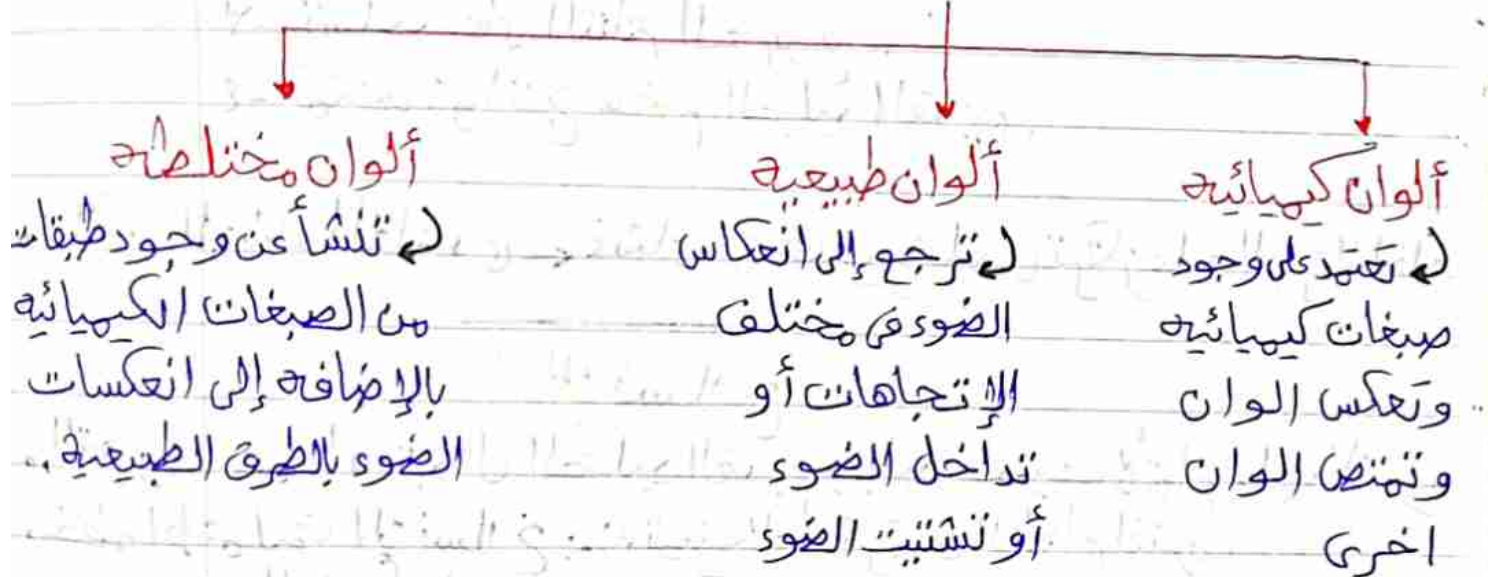 ألوان كيميائيه
تعتمد على وجود
صبغات كيميائيه
وتعكس الوان
وتمتص الوان
اخرى
ألوان طبيعيه
ترجع إلى انعكاس
الضوء في مختلف
الإتجاهات أو
تداخل الضوء
أو تشتيت الضوء
ألوان مختلطه
تنشأ عن وجود طبقات
من الصبغات الكيميائيه
بالإضافه إلى انعكسات
الضوء بالطرق الطبيعية.